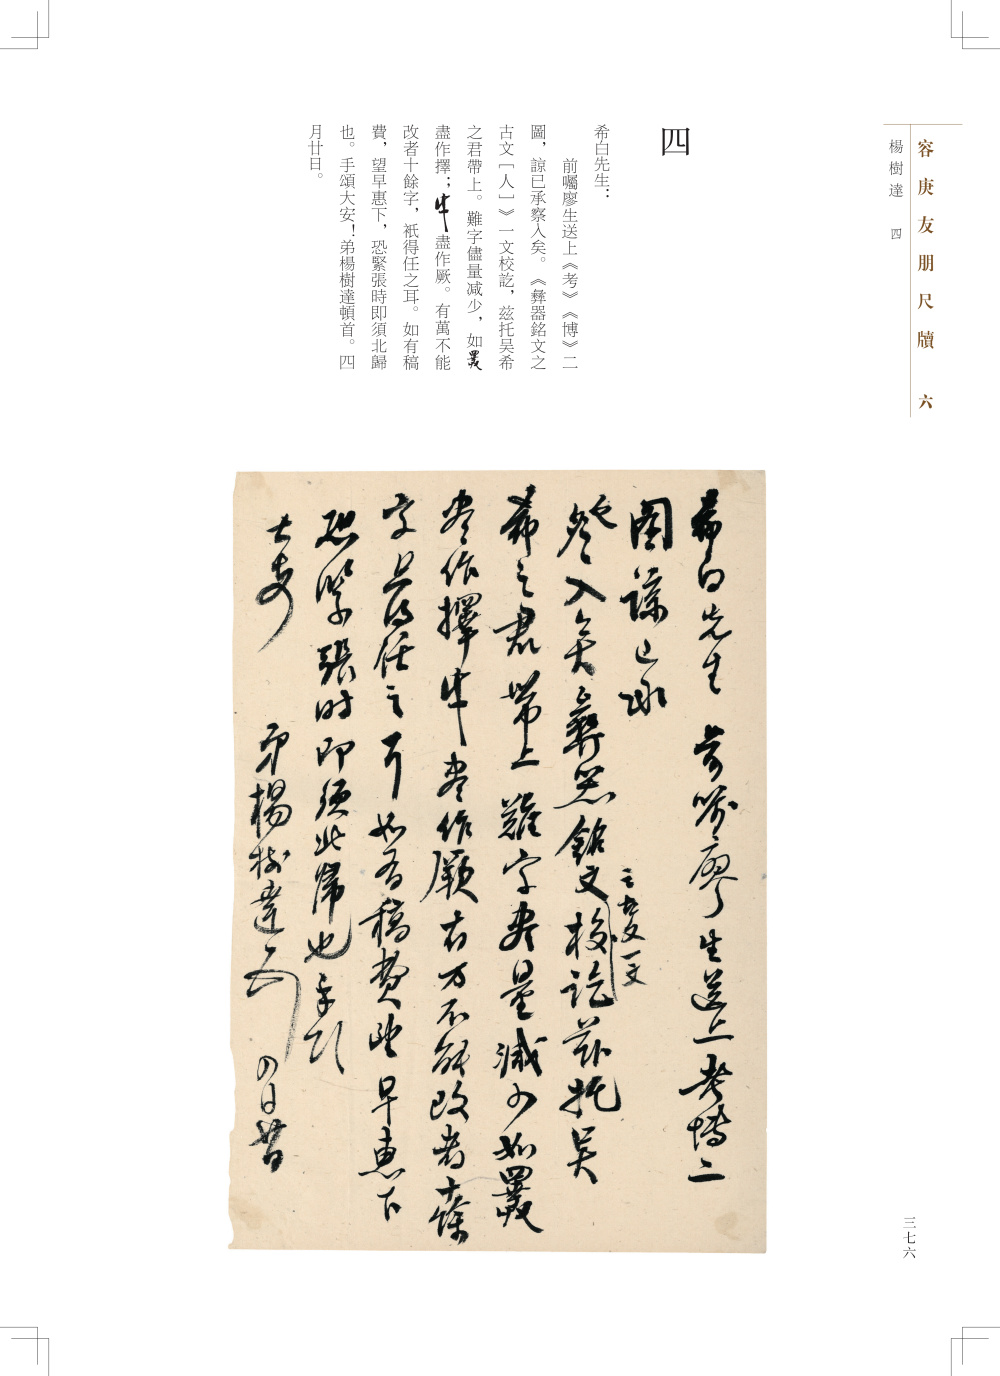 容庚友朋尺牘 六
楊樹達 四
四
希白先生：
前囑廖生送上《考》《博》二
圖，諒已承察入矣。《彝器銘文之
古文［人］》一文校訖，兹托吴希
之君帶上。難字儘量减少，如
盡作擇；盡作厥。有萬不能
改者十餘字，祇得任之耳。如有稿
費，望早惠下，恐緊張時即須北歸
也。手頌大安！弟楊樹達頓首。四
月廿日。
希白先生 前囑廖生送上考博二
圖諒已承
詧入矣彝器銘文校訖兹托吴
之古文一文
希之君帶上難字尽量减少如
尽作擇 尽作厥 有万不能改者十餘
字只得任之耳如有稿費望早惠下
恐緊張时即須北歸也手頌
大安
弟楊樹達 四月廿日
三七六